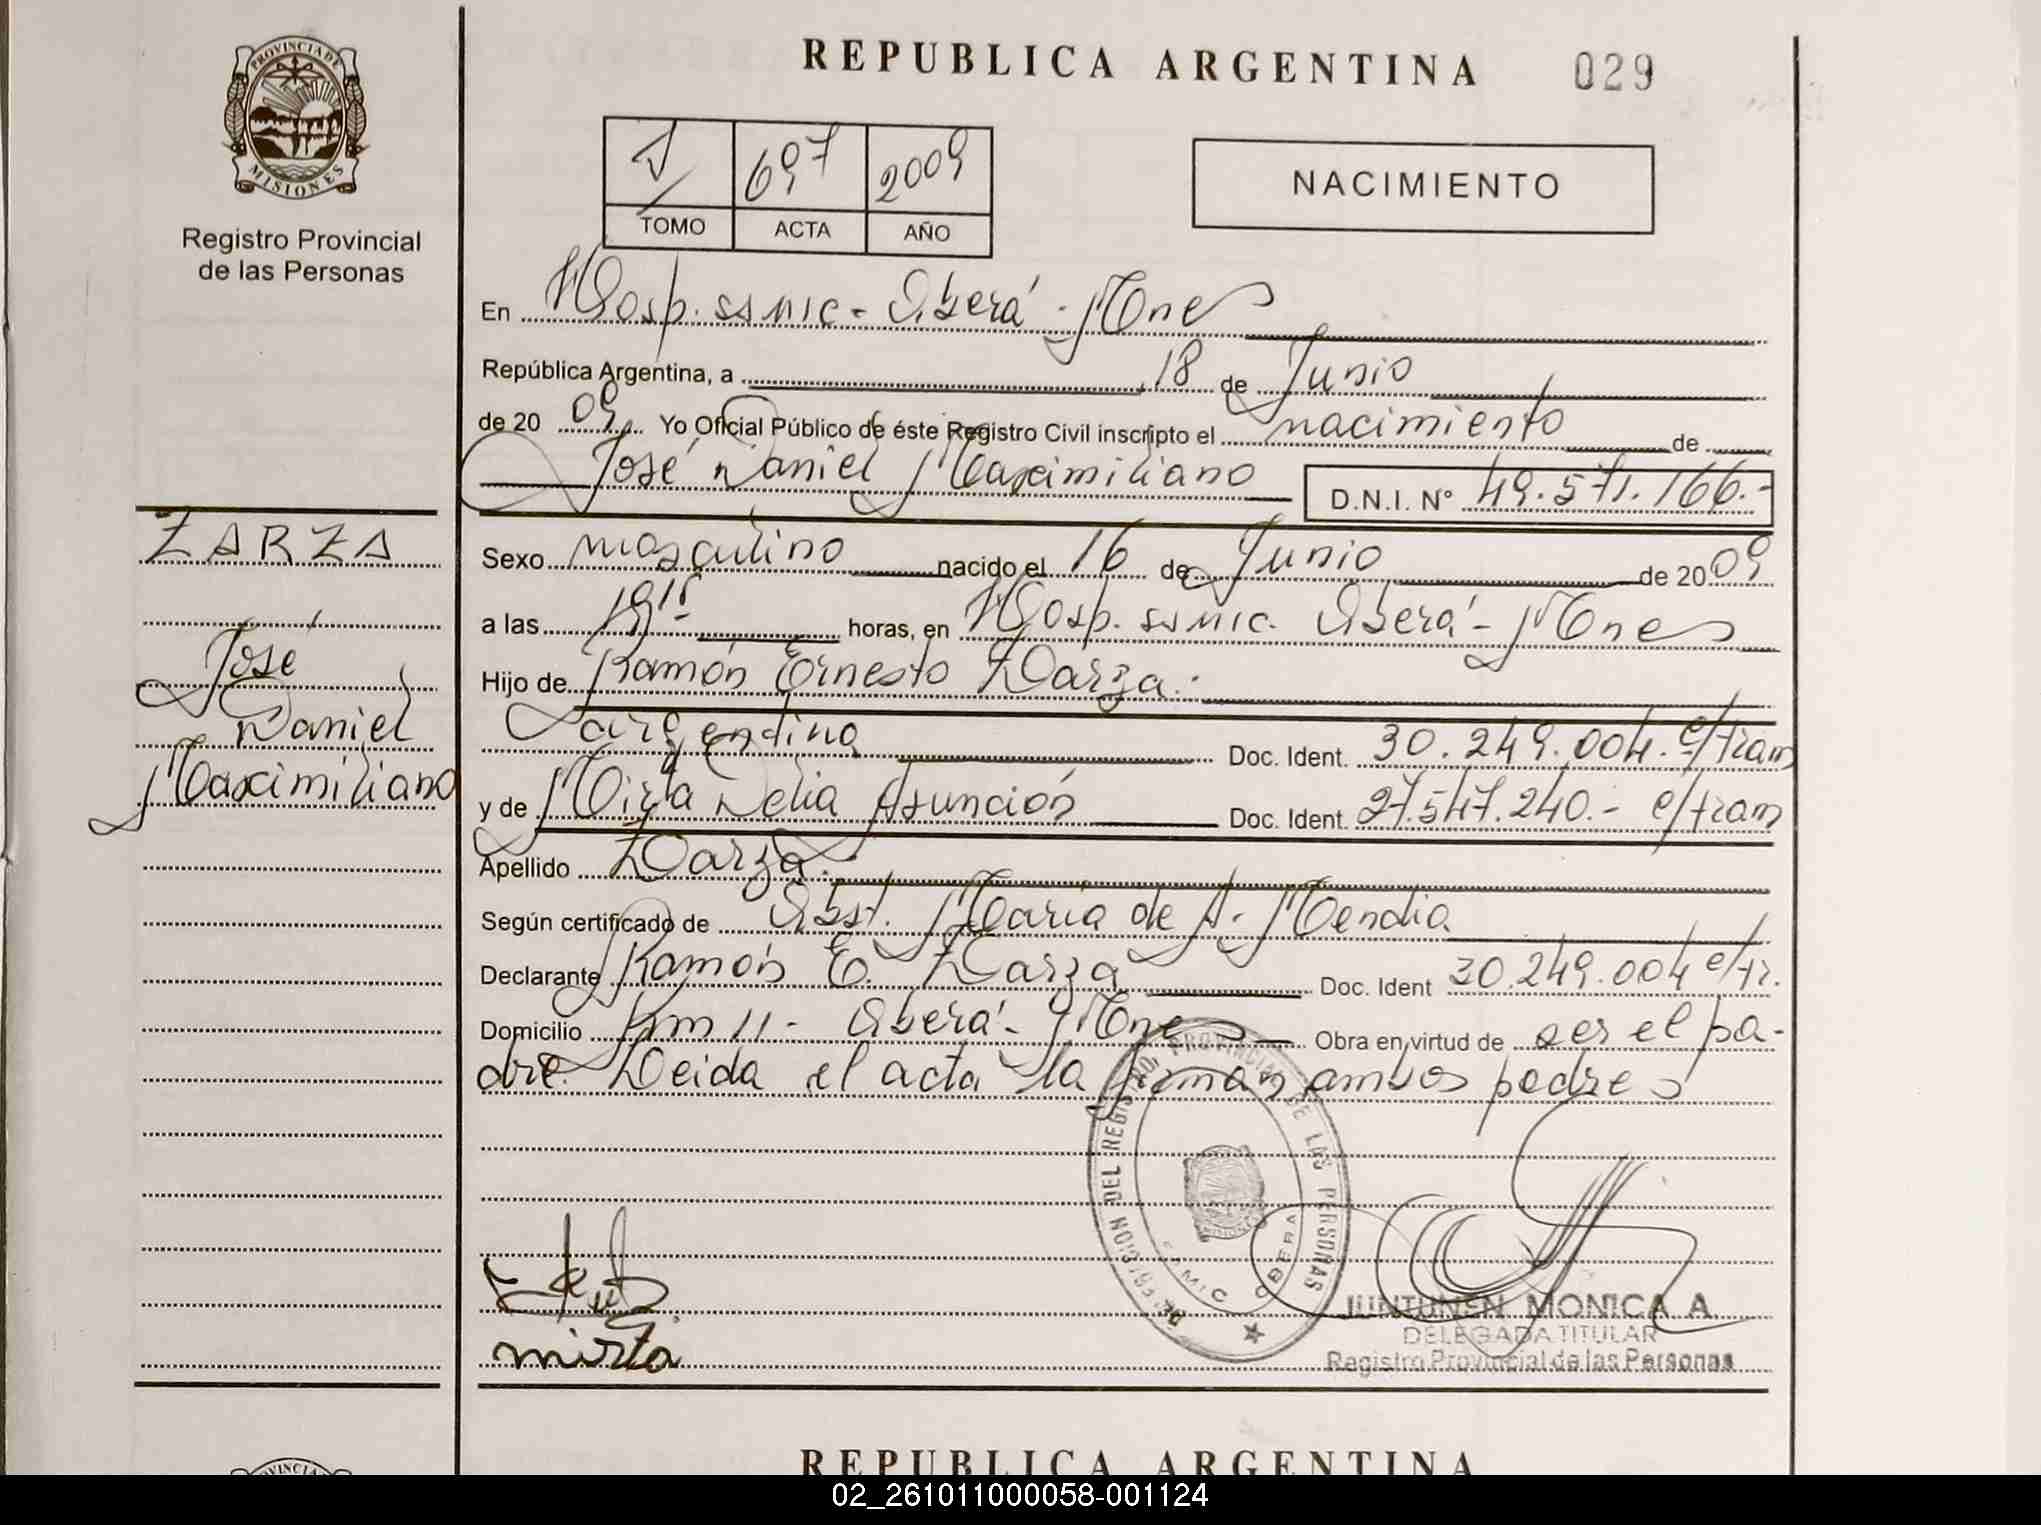 REPUBLICA ARGENTINA 029
PROVINCIA DE
MISIONES
Registro Provincial
de las Personas
1 697 2009
TOMO ACTA AÑO
NACIMIENTO
En Hosp. SSMIC - Oberá - Mnes
República Argentina, a 18 de Junio
de 20 09 Yo Oficial Público de éste Registro Civil inscripto el nacimiento de
José Daniel Maximiliano D.N.I. Nº 49.571.166.-
ZARZA
José
Daniel
Maximiliano
Sexo masculino nacido el 16 de Junio de 20 09
a las horas, en Hosp. SSMIC. Oberá - Mnes
Hijo de Ramón Ernesto Zarza.
argentino Doc. Ident. 30.249.004. e/tram
y de Mirta Delia Asunción Doc. Ident. 27.547.240.- e/tram
Apellido Zarza.
Según certificado de Obst. María de A. Mendia
Declarante Ramón E. Zarza Doc. Ident 30.249.004 e/tr.
Domicilio Km 11 - Oberá - Mnes Obra en virtud de ser el pa-
dre. Leida el acta la firman ambos padres
DELEGACION DEL REGISTRO PROVINCIAL DE LAS PERSONAS
OBERA
mirta
JUNTUNEN MONICA A
DELEGADA TITULAR
Registro Provincial de las Personas
REPUBLICA ARGENTINA
02_261011000058-001124